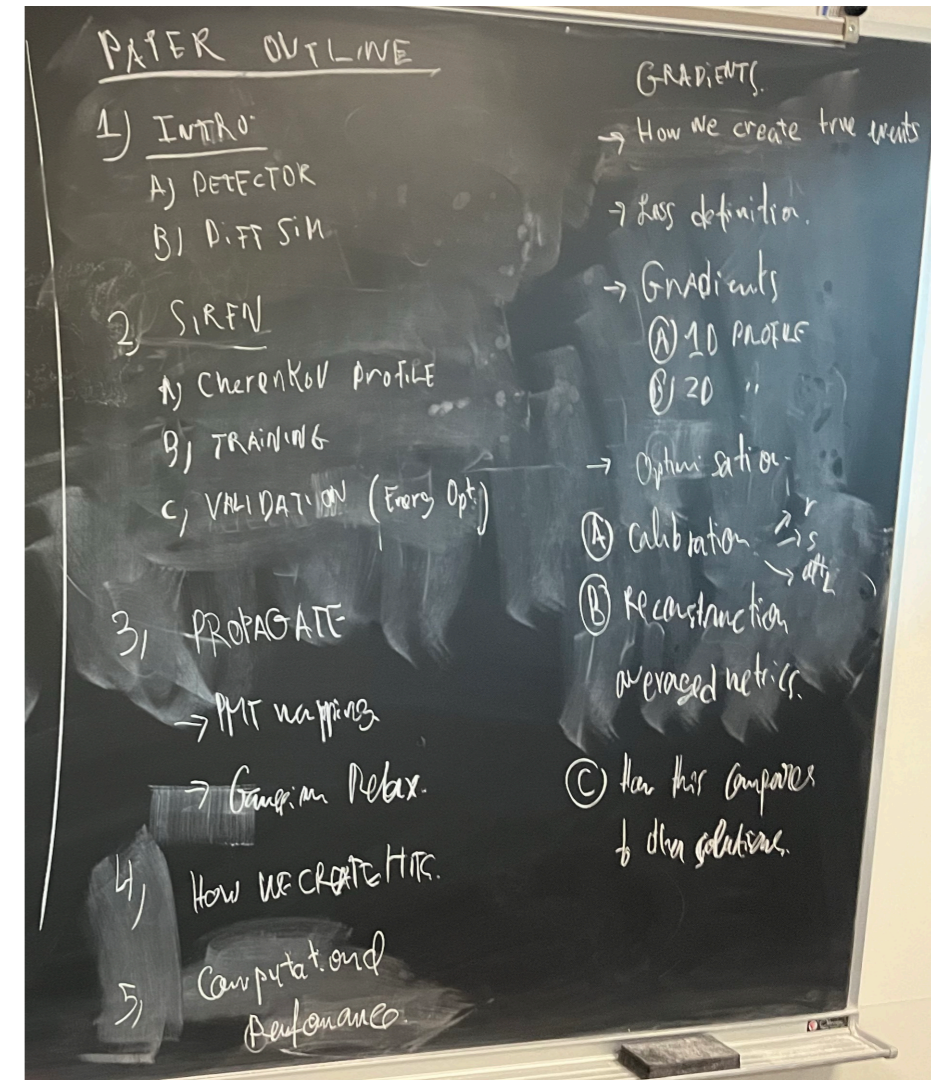 PAPER OUTLINE
1) INTRO
A) DETECTOR
B) DIFF SIM
2) SIREN
A) Cherenkov PROFILE
B) TRAINING
C) VALIDATION (Energ Opt.)
3) PROPAGATE
→ PMT mapping
→ Gaussian Relax.
4) HOW WE CREATE HITS.
5) Computational
Performance.
GRADIENTS.
→ How we create true events
→ Loss definition.
→ Gradients
Ⓐ 1D PROFILE
Ⓑ 2D "
→ Optimisation
Ⓐ Calibration → r
→ s
→ att L
Ⓑ Reconstruction
averaged metrics.
Ⓒ How this compares
to other solutions.